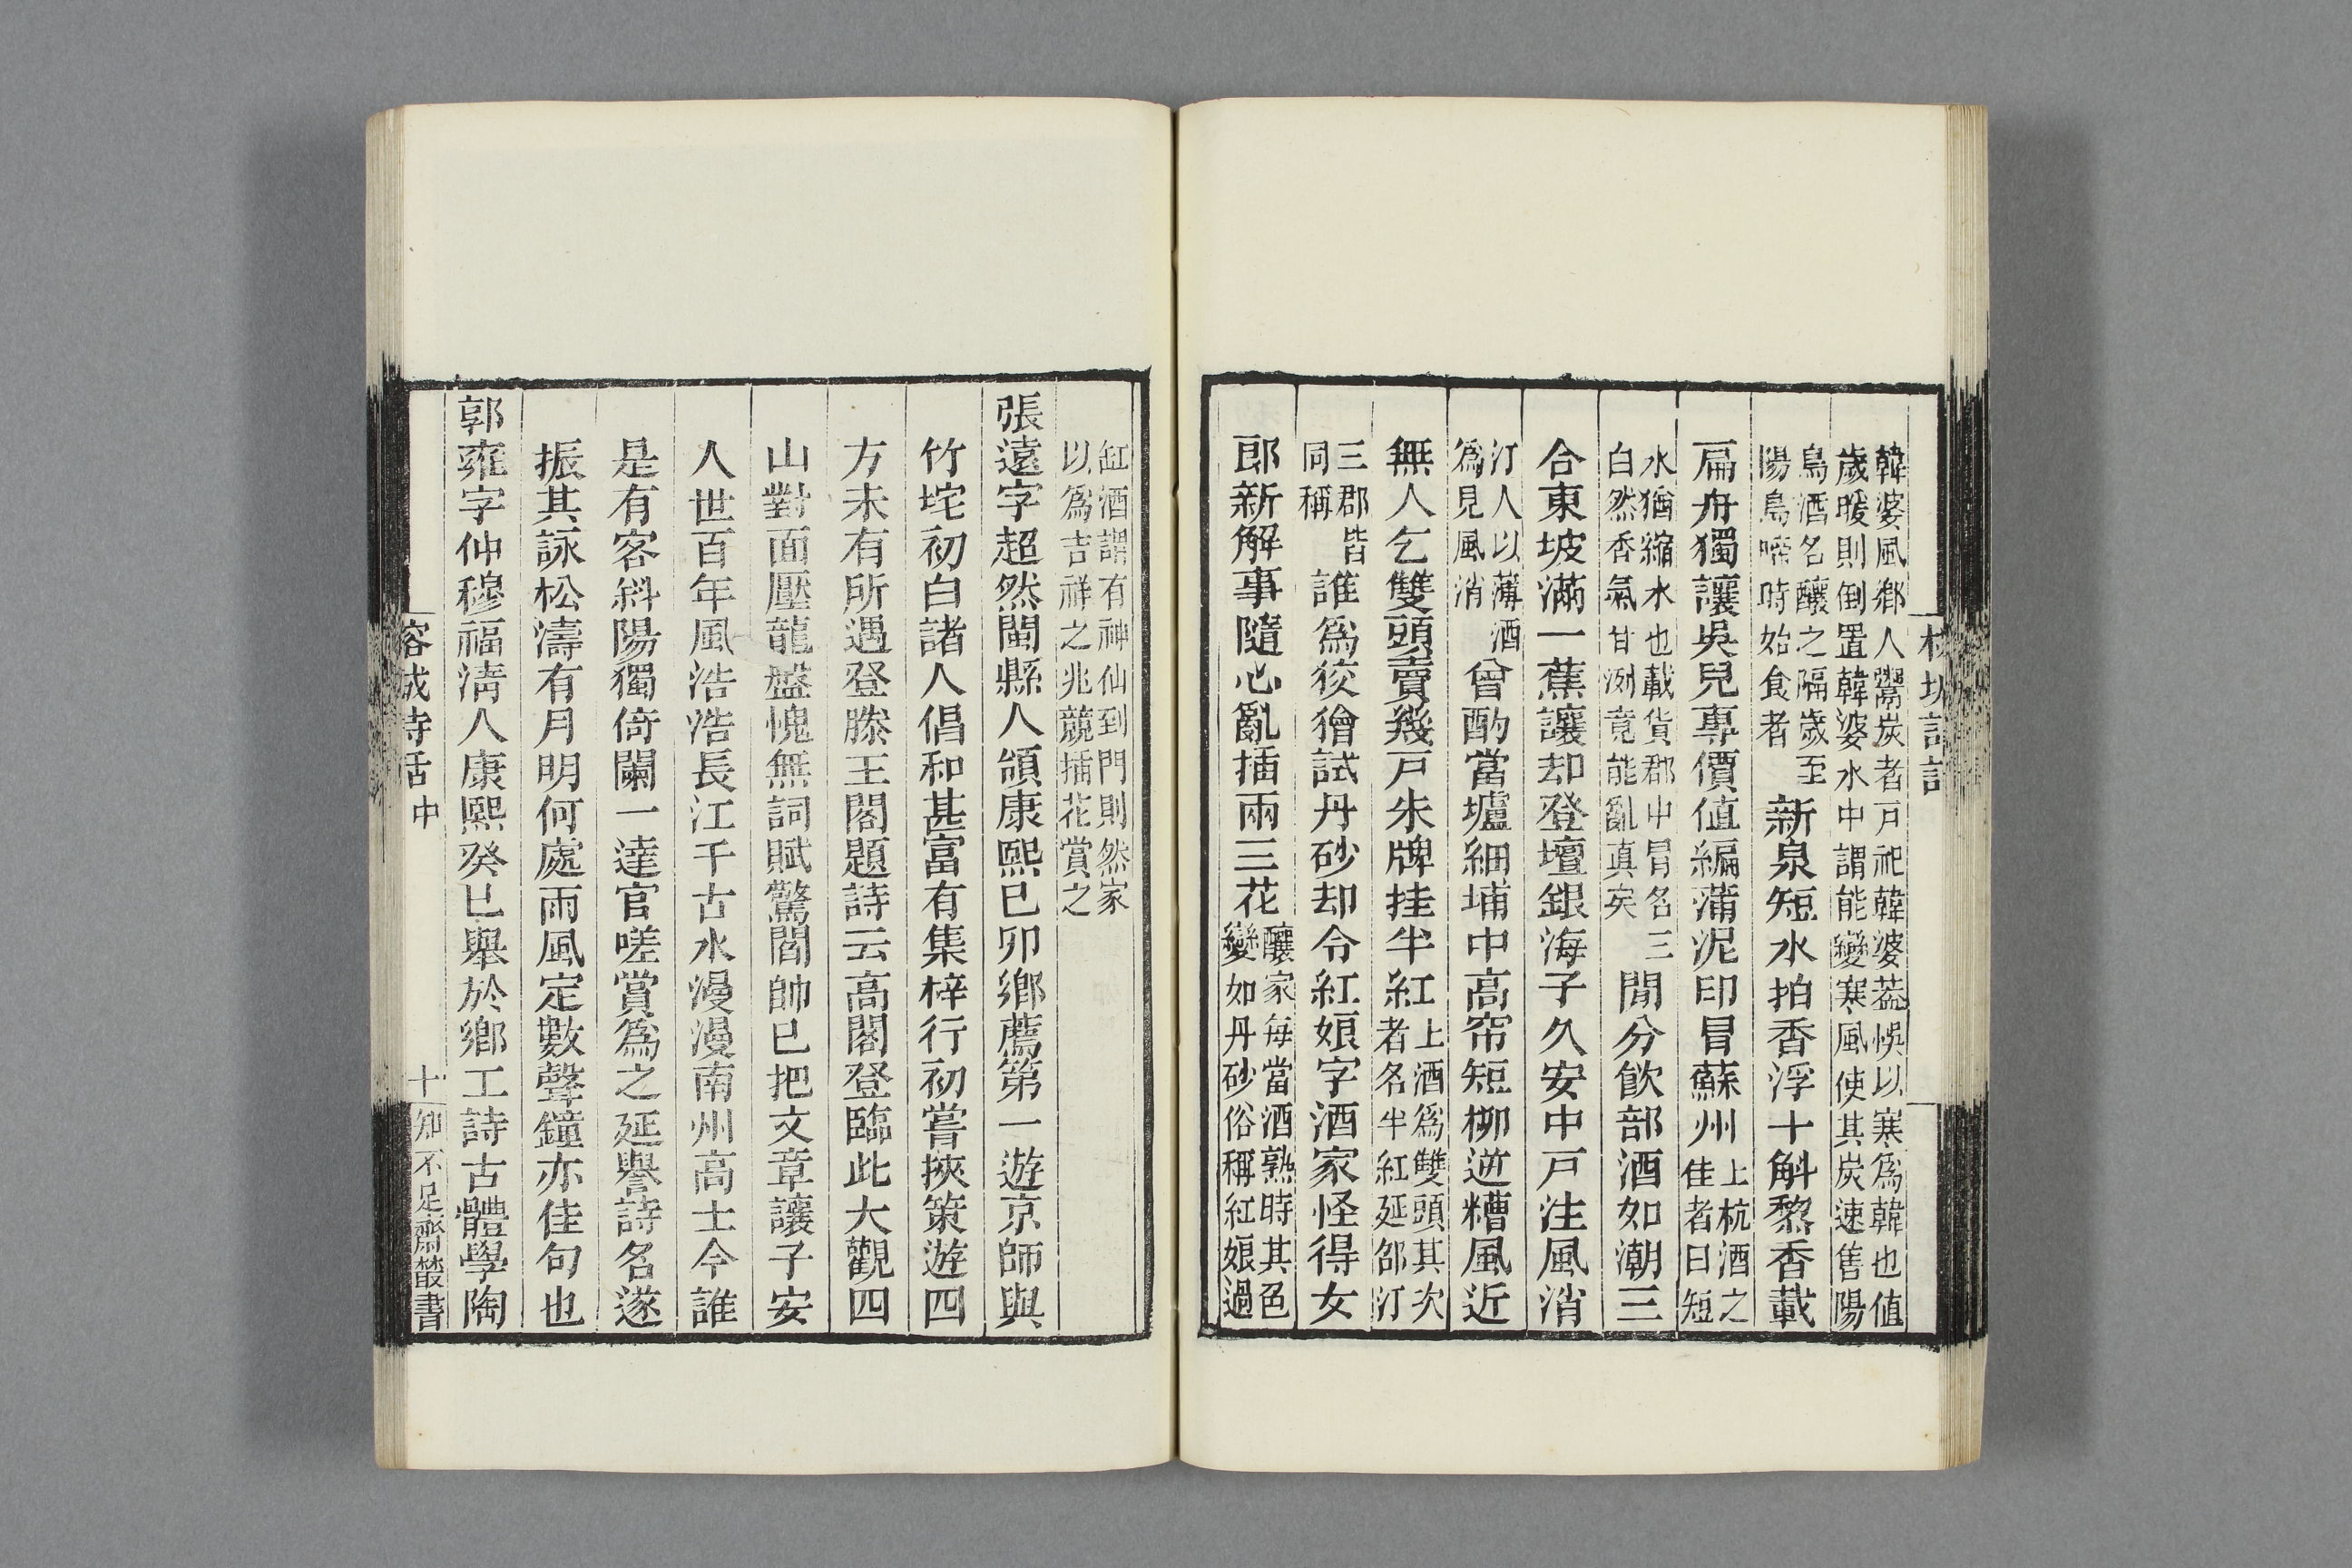 韓婆風鄉人鬻炭者戸祀韓婆葢悞以寒爲韓也值
歲暖則倒置韓婆水中謂能變寒風使其炭速售陽
鳥酒名釀之隔歲至
陽鳥啼時始食者
新泉短水拍香浮十斛黎香載
扁舟獨讓吳兒專價值編蒲泥印冒蘇州
上杭酒之
佳者曰短
水猶縮水也載貨郡中冒名三
白然香氣甘洌竟能亂真矣
閒分飲部酒如潮三
合東坡滿一蕉讓却登壇銀海子久安中戸注風消
汀人以薄酒
爲見風消
曾酌當壚細埔中高帘短柳逆糟風近
無人乞雙頭賣幾戸朱牌挂半紅
上酒爲雙頭其次
者名半紅延郃汀
三郡皆
同稱
誰爲狡獪試丹砂却令紅娘字酒家怪得女
郎新解事隨心亂插兩三花
釀家每當酒熟時其色
變如丹砂俗稱紅娘過
缸酒謂有神仙到門則然家
以爲吉祥之兆競插花賞之
張遠字超然閩縣人頜康熙已卯鄉薦第一遊京師與
竹垞初白諸人倡和甚富有集梓行初嘗挾策遊四
方未有所遇登滕王閣題詩云高閣登臨此大觀四
山對面壓龍盤愧無詞賦驚閻帥已把文章讓子安
人世百年風浩浩長江千古水漫漫南州高士今誰
是有客斜陽獨倚闌一達官嗟賞爲之延譽詩名遂
振其詠松濤有月明何處雨風定數聲鐘亦佳句也
郭雍字仲穆福淸人康熙癸巳舉於鄉工詩古體學陶
中
十
知不足齋叢書